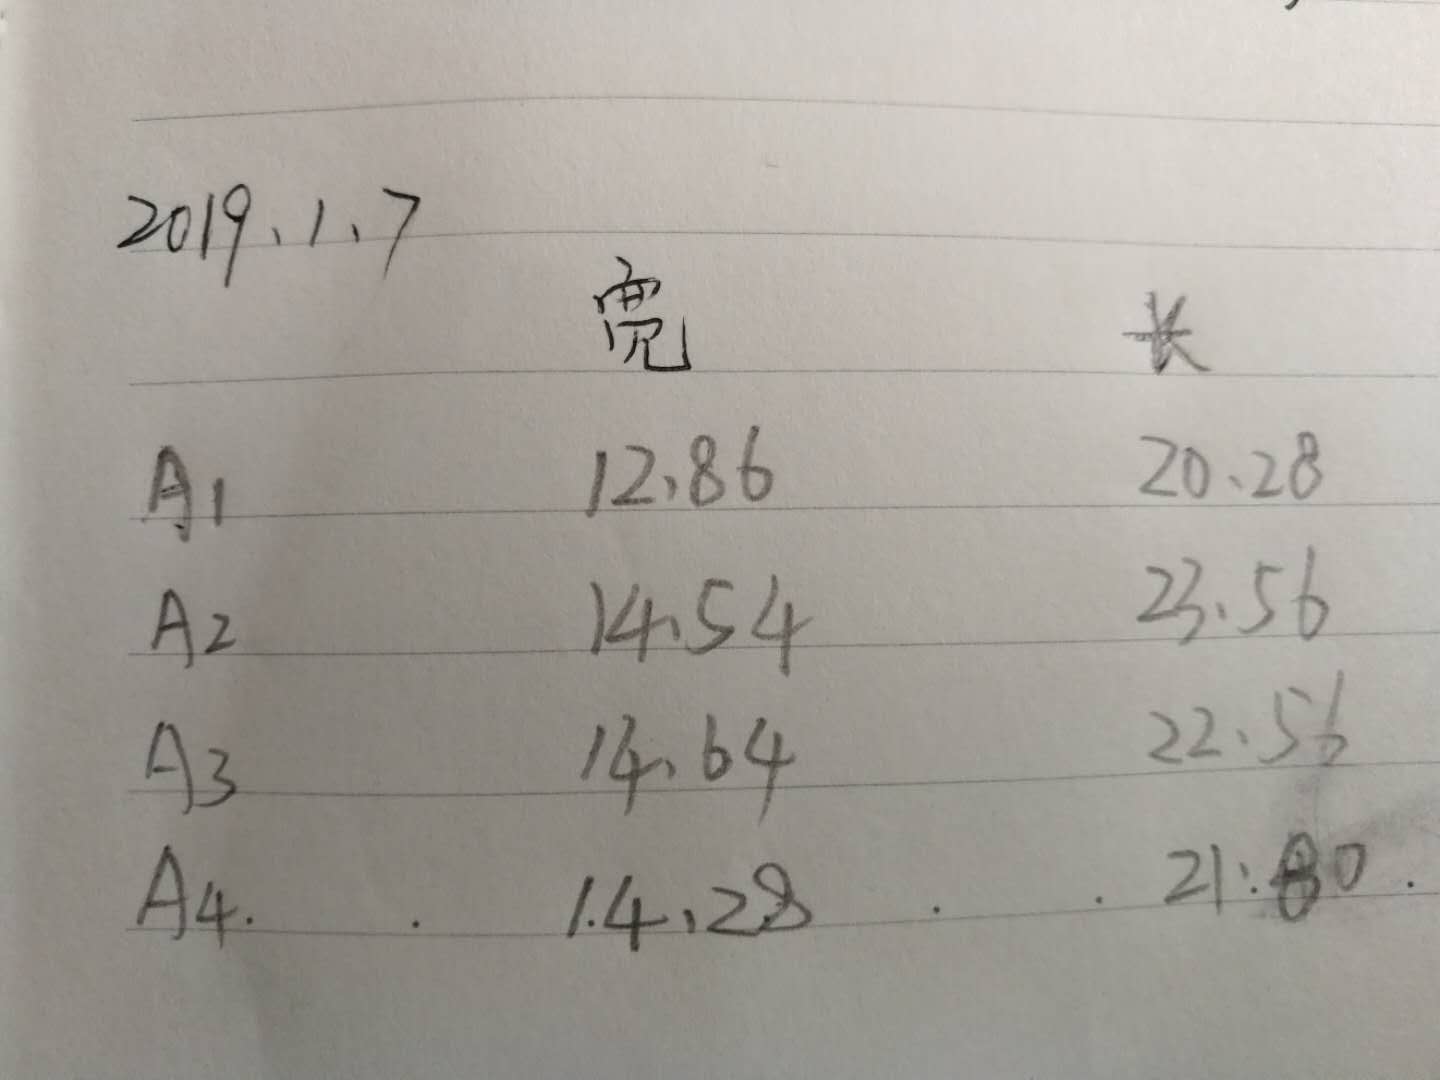 2019.1.7
宽 长
A1 12.86 20.28
A2 14.54 23.56
A3 14.64 22.56
A4. 14.28 21.80